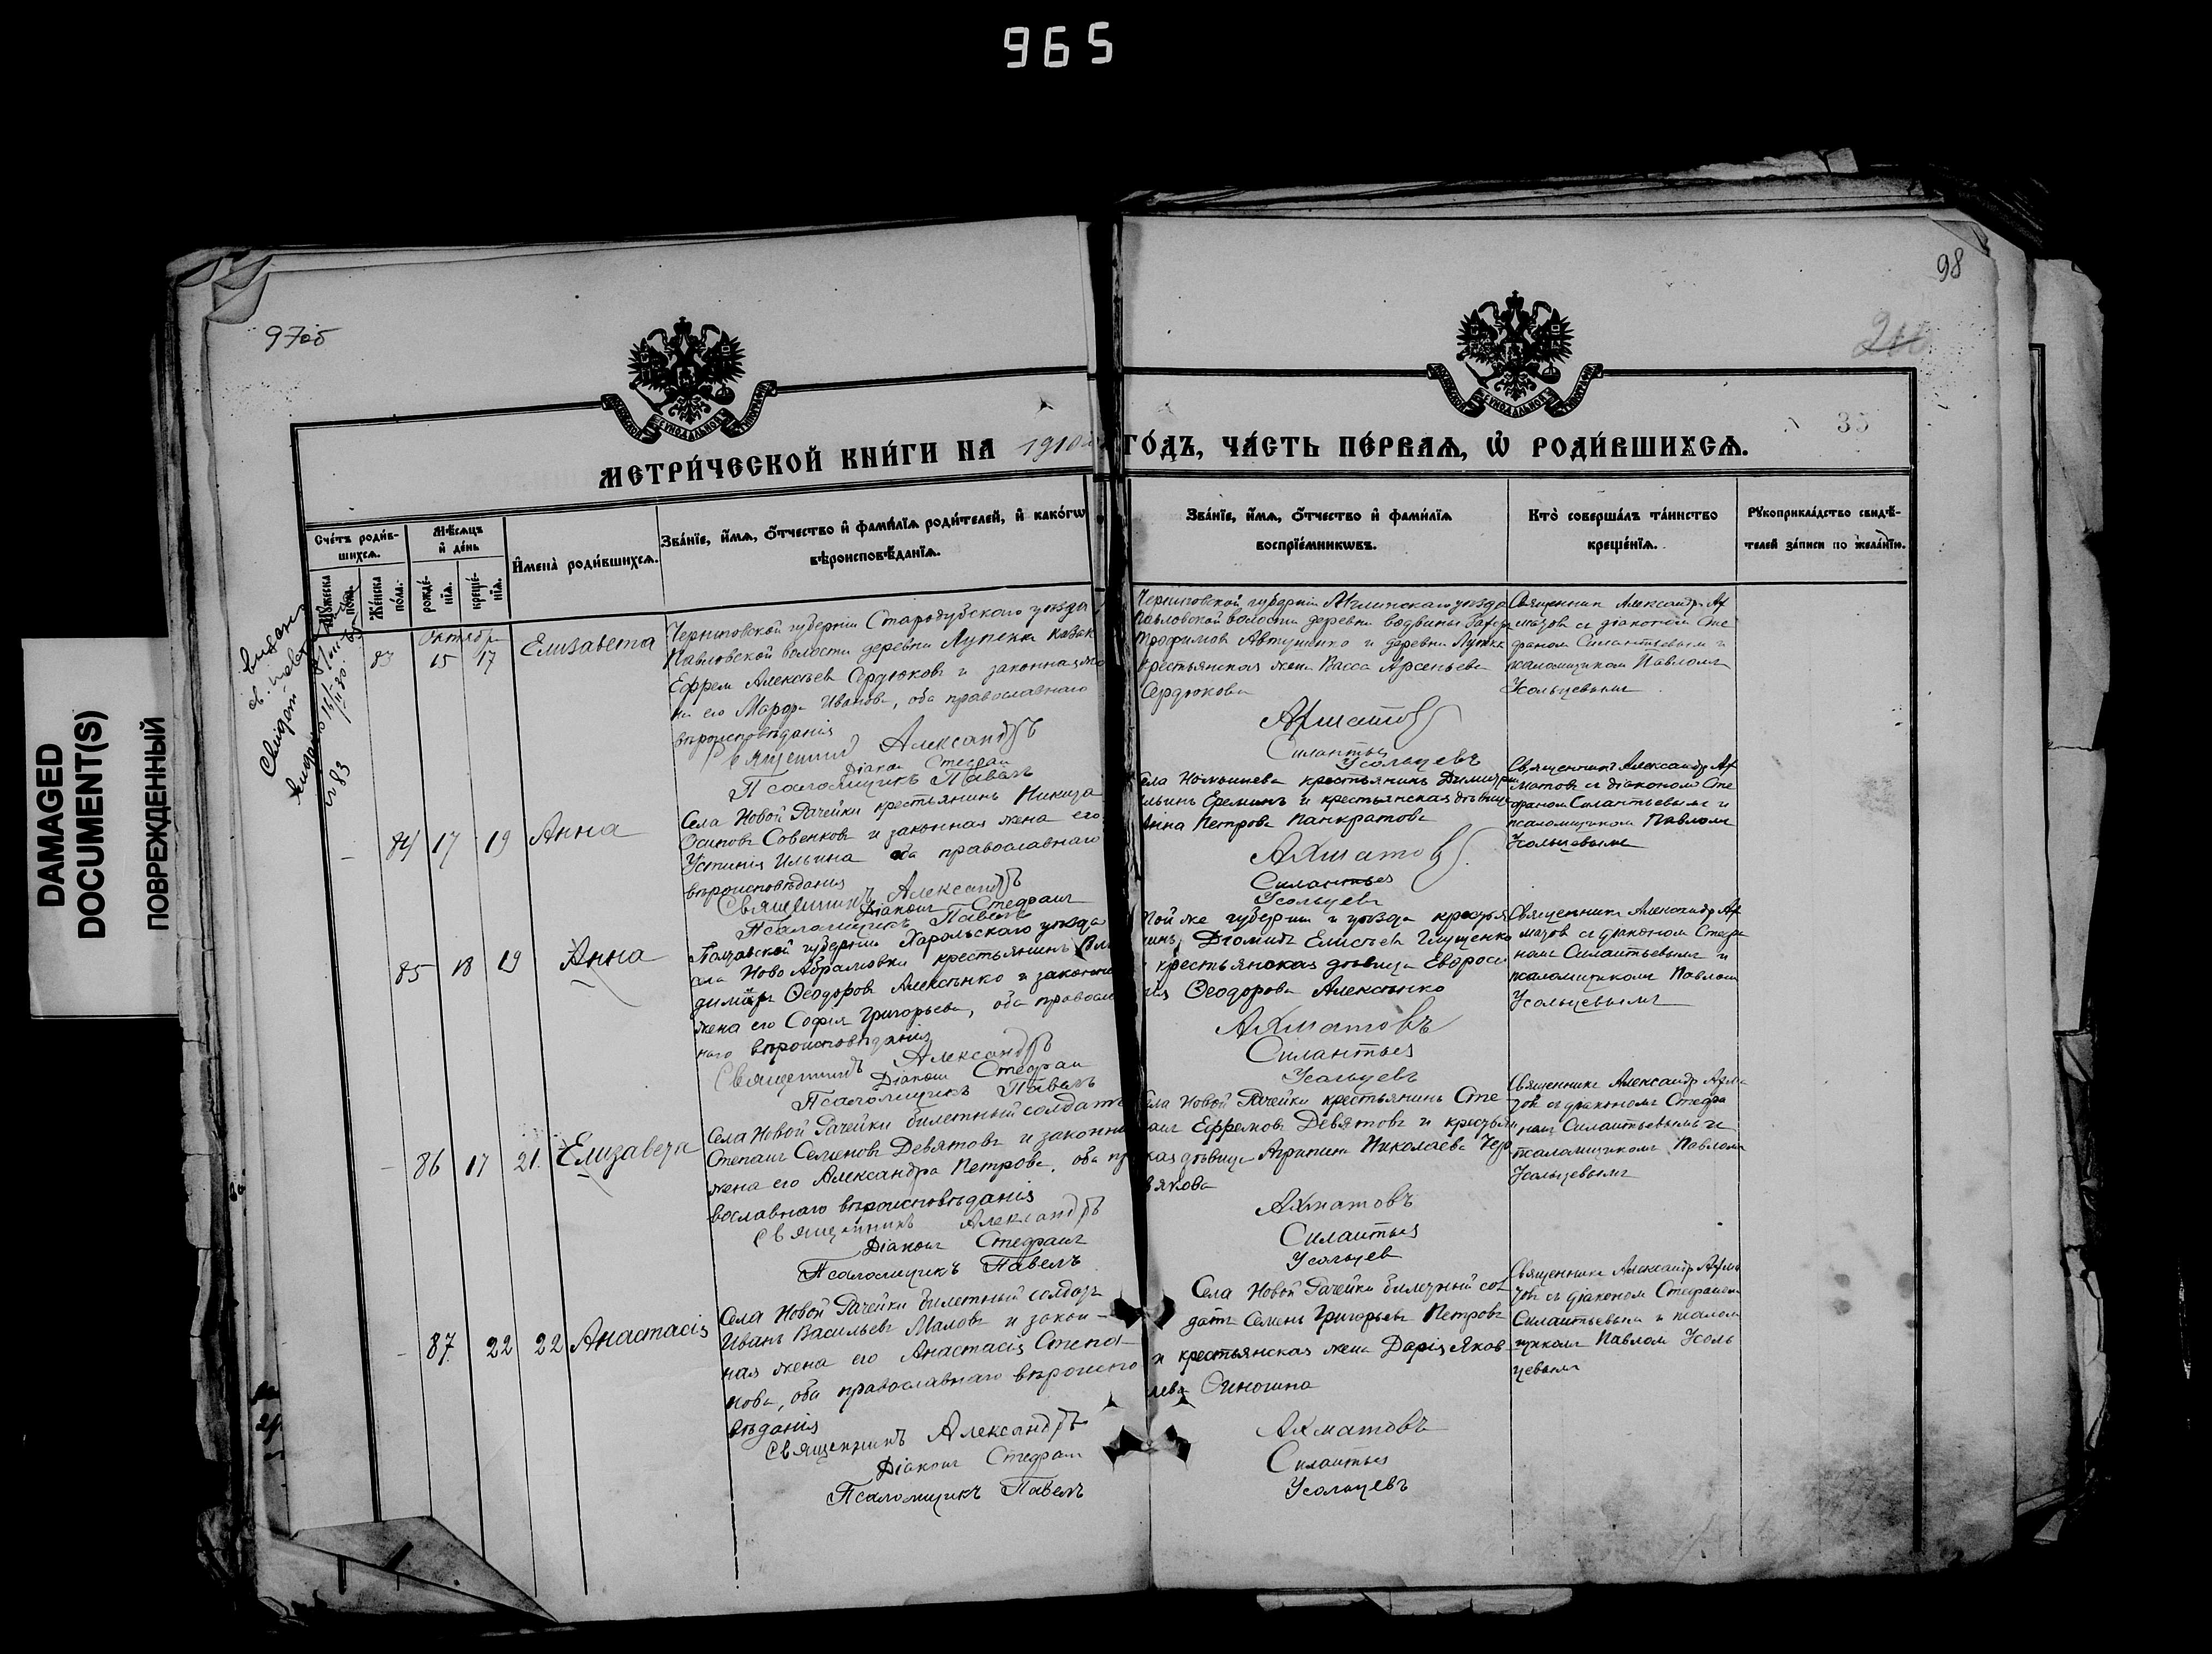 965
DAMAGED
DOCUMENT(S)
ПОВРЕЖДЕННЫЙ
97об
98
35
МЕТРИ́ЧЕСКОЙ КНИ́ГИ НА 1910 ГО́ДЪ, ЧА́СТЬ ПЕ́РВАѦ, Ѡ҆ РОДИ́ВШИХСѦ.
Сче́тъ роди́в-
шихсѧ.
Мѣ́сѧцъ
и҆ де́нь
И҆мена̀ роди́вшихсѧ.
Зва́нїе, и҆́мѧ, ѻ҆́тчество и҆ фами́лїѧ роди́телей, и҆ како́гѡ
вѣроисповѣ́данїѧ.
Зва́нїе, и҆́мѧ, ѻ҆́тчество и҆ фами́лїѧ
воспрїе́мникѡвъ.
Кто̀ соверша́лъ та́инство
креще́нїѧ.
Рꙋкоприкла́дство свидѣ́-
телей за́писи по жела́нїю.
Мꙋ́жеска
по́ла.
Же́нска
по́ла.
рожде́-
нїѧ.
креще́-
нїѧ.
№ 83
Октябрь
83 15 17 Елизавета
Черниговской губернии Стародубского уезда
Павловской волости деревни Лутенки казак
Ефрем Алексеев Сердюковъ и законная же
на его Марфа Иванова, оба православнаго
вероисповеданія
Священник Александръ
Діакон Стефан
Псаломщикъ Павелъ
Черниговской губернии Мглинскаго уезда
Павловской волости деревни
Трофимов Автушенко и деревни Лутенки
крестьянская жена Васса Арсеньева
Сердюкова
Ахматов
Силантьев
Усольцевъ
Священник Александр Ах
матов с діаконом Сте
фаном Силантьевым и
псаломщиком Павломъ
Усольцевымъ
84 17 19 Анна
Села Новой Рачейки крестьянинъ Никита
Осиповъ Совенковъ и законная жена его
Устинія Ильина оба православнаго
вероисповеданія
Священникъ Александръ
Діаконъ Стефанъ
Псаломщикъ Павелъ
крестьянинъ Димитрий
Ильинъ Ереминъ и крестьянская девица
Анна Петрова Панкратова
Ахматовъ
Силантьев
Усольцевъ
Священникъ Александр Ах
матов с діаконом Сте
фаном Силантьевымъ и
псаломщиком Павломъ
Усольцевымъ
85 18 19 Анна
Полтавской губернии Харольскаго уезда
села Ново Абрамовки крестьянинъ Вла
димиръ Ѳеодоров Алексенко и законная
жена его Софія Григорьева, оба правосла
наго вероисповеданія
Священникъ Александръ
Діаконъ Стефан
Псаломщикъ Павелъ
Той же губернии и уезда крестья
нинъ Діомидъ Елисеев Глущенко
и крестьянская девица Евфроси
нія Ѳеодорова Алексенко
Ахматовъ
Силантьев
Усольцевъ
Священникъ Александр Ах
матов с діаконом Стефа
номъ Силантьевымъ и
псаломщиком Павлом
Усольцевымъ
86 17 21 Елизавета
Села Новой Рачейки билетный солдатъ
Степанъ Семеновъ Девятовъ и законная
жена его Александра Петрова, оба пра
вославнаго вероисповеданія
Священникъ Александръ
Діаконъ Стефанъ
Псаломщикъ Павелъ
Села Новой Рачейки крестьянинъ Сте
панъ Ефремовъ Девятовъ и крестьян
ская девица Агрипина Николаева
Ахматовъ
Силантьев
Усольцев
Священникъ Александр Ахма
товъ с діаконом Стефа
номъ Силантьевымъ и
псаломщикомъ Павломъ
Усольцевымъ
87 22 22 Анастасія
Села Новой Рачейки билетный солдатъ
Иванъ Васильевъ Маловъ и закон-
ная жена его Анастасія Степа-
нова, оба православнаго вероиспо
веданія
Священникъ Александръ
Діаконъ Стефан
Псаломщикъ Павелъ
Села Новой Рачейки билетный сол
датъ Семенъ Григорьевъ Петровъ
и крестьянская жена Дарія Яков
лева Синогина
Ахматовъ
Силантьев
Усольцевъ
Священникъ Александр Ахма
товъ с діаконом Стефаном
Силантьевымъ и псалом
щиком Павлом Усоль
цевымъ